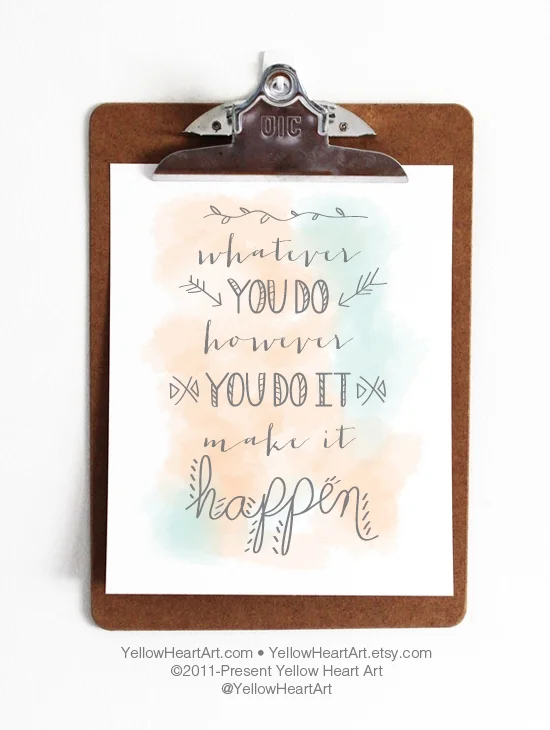 OIC
whatever
YOU DO
however
YOU DO IT
make it
happen
YellowHeartArt.com • YellowHeartArt.etsy.com
©2011-Present Yellow Heart Art
@YellowHeartArt